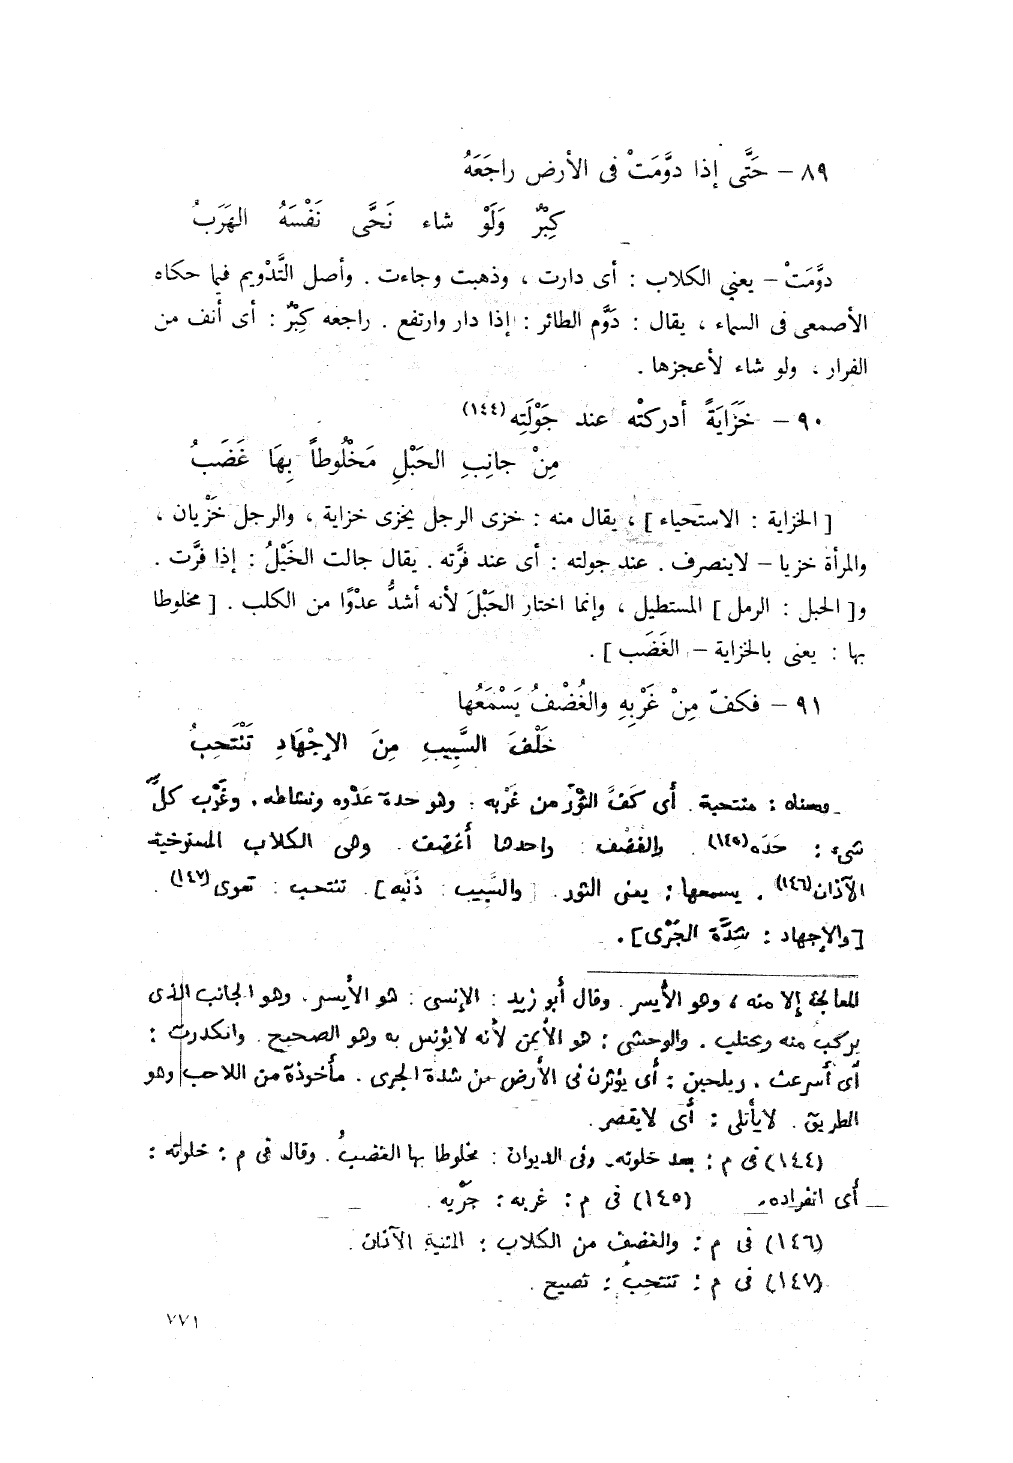 ٨٩ – حَتَّى إذا دوَّمَتْ فى الأرض راجَعَهُ
كِبْرٌ وَلَوْ شاء نَحَّى نَفْسَهُ الهَرَبُ
دوَّمَتْ – يعني الكلاب : أى دارت ، وذهبت وجاءت . وأصل التَّدْويم فيما حكاه
الأصمعى فى السماء ، يقال : دَوَّم الطائر : إذا دار وارتفع . راجعه كِبْرٌ : أى أنف من
الفرار ، ولو شاء لأعجزها .
٩٠ – خَزَايَةً أدركتْه عند جَوْلَتِه (١٤٤)
مِنْ جانِبِ الحَبْلِ مَخْلُوطاً بِهَا غَضَبُ
[ الخزاية : الاستحياء ] ، يقال منه : خزى الرجل يخزى خزاية ، والرجل خَزْيان ،
والمرأة خزيا – لاينصرف . عند جولته : أى عند فرَّته . يقال جالت الخَيْلُ : إذا فرَّت .
و[ الحبل : الرمل ] المستطيل ، وإنما اختار الحَبْلَ لأنه أشدُّ عدْوًا من الكلب . [ مخلوطا
بها : يعنى بالخزاية – الغَضَب ] .
٩١ – فكفّ مِنْ غَرْبِهِ والغُضْفُ يَسْمَعُها
خَلْفَ السَّبِيبِ مِنَ الإجْهَادِ تَنْتَحِبُ
معناه : منتحبة . أى كَفَّ الثوْرُ من غَرْبه : وهو حدة عَدْوه ونشاطه . وغَرْب كلِّ
شىء : حَدّه (١٤٥) . والغُضْف : واحدها أغضف . وهى الكلاب المسترخية
الآذان (١٤٦) . يسمعها : يعنى الثور . [ والسَّبِيب : ذَنَبه ] . تنتحب : تعوى (١٤٧) .
[والإجهاد : شِدَّة الجَرْى] .
للمعالجة إلا منه ، وهو الأيسر . وقال أبو زيد : الإنسى : هو الأيسر . وهو الجانب الذى
يركب منه ويحتلب . والوحشى : هو الأيمن لأنه لايؤنس به وهو الصحيح . وانكدرت :
أى أسرعت . ويلحبن : أى يؤثرن فى الأرض من شدة الجرى . مأخوذة من اللاحب وهو
الطريق . لايأتلى : أى لايقصر .
(١٤٤) فى م : بعد خلوته . وفى الديوان : مخلوطا بها الغضبُ . وقال فى م : خلوته :
أى انفراده . (١٤٥) فى م : غربه : جَرْيه .
(١٤٦) فى م : والغضف من الكلاب : المثنية الآذان .
(١٤٧) فى م : تنتحِبُ : تصيح .
٧٧١